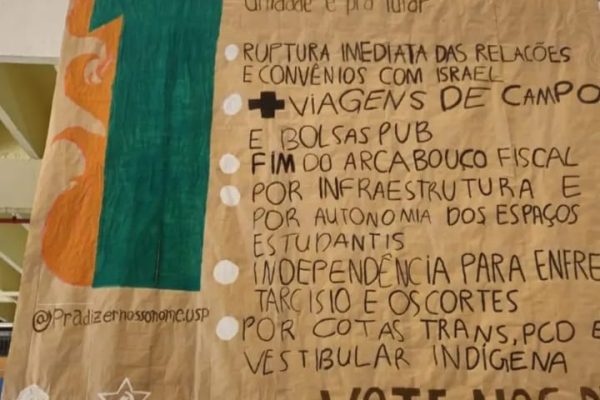 Unidade é pra lutar
1
RUPTURA IMEDIATA DAS RELAÇÕES
E CONVÊNIOS COM ISRAEL
+ VIAGENS DE CAMPO
E BOLSAS PUB
FIM DO ARCABOUÇO FISCAL
POR INFRAESTRUTURA E
POR AUTONOMIA DOS ESPAÇOS
ESTUDANTIS
INDEPENDÊNCIA PARA ENFRE
TARCISIO E OS CORTES
@Pradizernossonome.usp
POR COTAS TRANS, PCD E
VESTIBULAR INDÍGENA